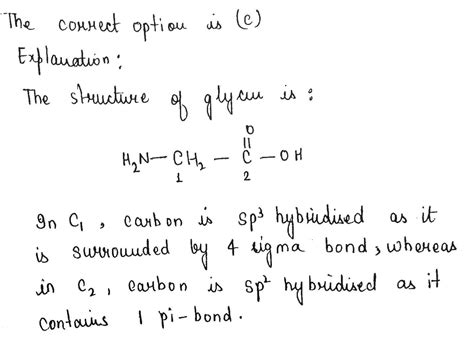 The correct option is (c)
Explanation :
The structure of glycin is :
O
||
H₂N — CH₂ — C — OH
1 2
In C₁ , carbon is sp³ hybridised as it
is surrounded by 4 sigma bond , whereas
in C₂ , carbon is sp² hybridised as it
contains 1 pi-bond .